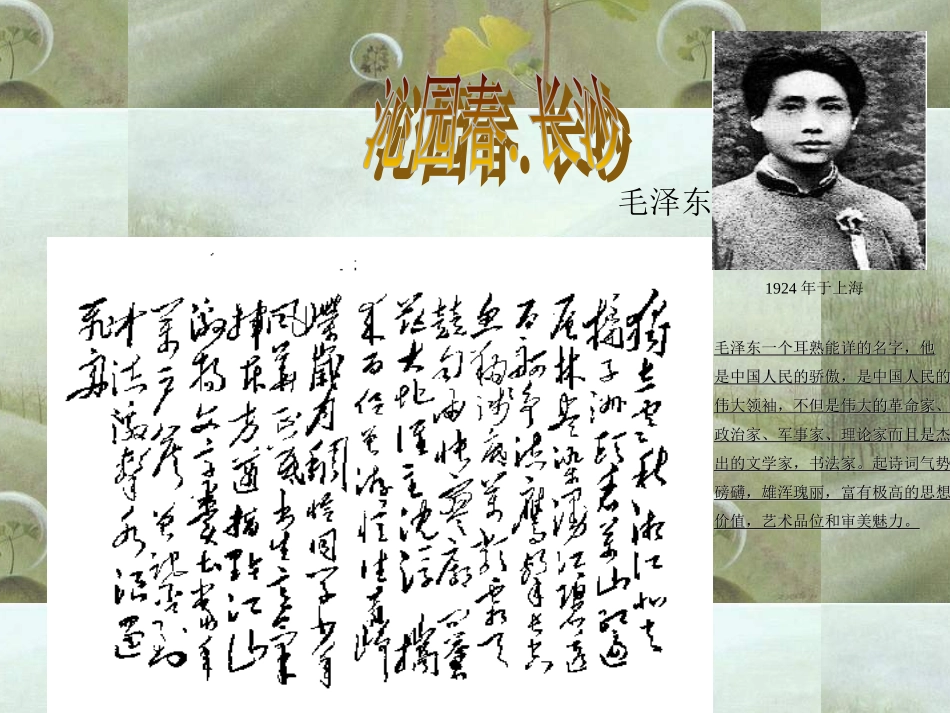 沁园春.长沙
毛泽东
1924 年于上海
毛泽东一个耳熟能详的名字，他
是中国人民的骄傲，是中国人民的
伟大领袖，不但是伟大的革命家、
政治家、军事家、理论家而且是杰
出的文学家，书法家。起诗词气势
磅礴，雄浑瑰丽，富有极高的思想
价值，艺术品位和审美魅力。
独立寒秋湘江北去
橘子洲头看万山红遍
层林尽染漫江碧透
百舸争流鹰击长空
鱼翔浅底万类霜天
竞自由怅寥廓问苍
茫大地谁主沉浮携
来百侣曾游忆往昔峥
嵘岁月稠恰同学少年
风华正茂书生意气
挥斥方遒指点江山
激扬文字粪土当年
万户侯曾记否到
中流击水浪遏
飞舟